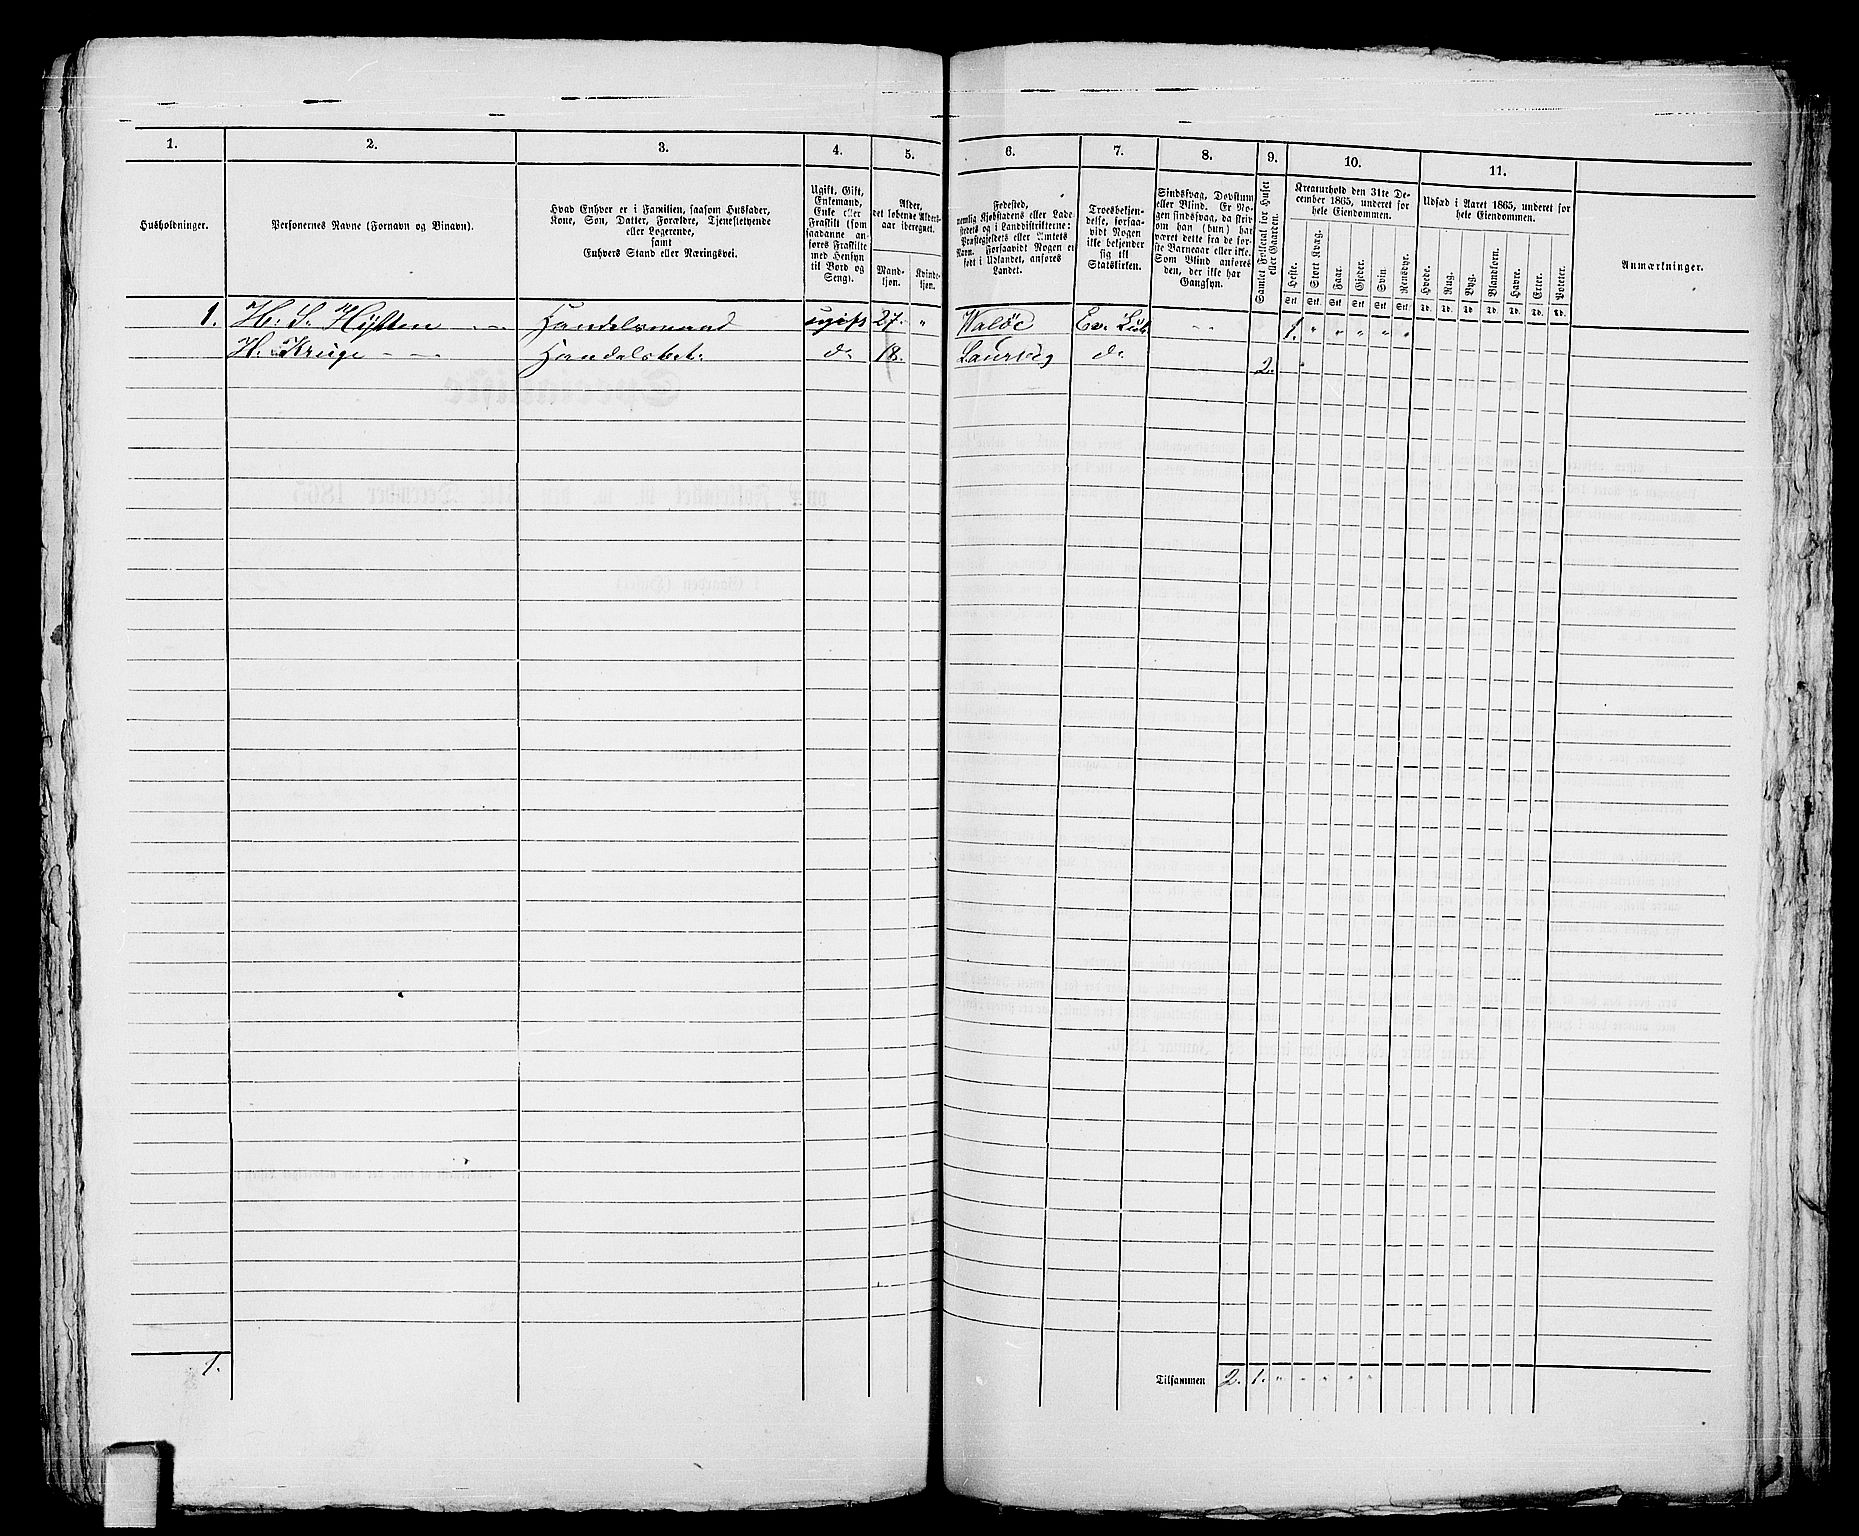 1. 2. 3. 4. 5. 6. 7. 8. 9. 10. 11.
Husholdninger.
Personernes Navne (Fornavn og Binavn).
Hvad Enhver er i Familien, saasom Husfader,
Kone, Søn, Datter, Forældre, Tjenestetyende
eller Logerende,
samt
Enhvers Stand eller Næringsvei.
Ugift, Gift,
Enkemand,
Enke eller
Fraskilt (som
saadanne an-
føres Fraskilte
med Hensyn
til Bord og
Seng).
Alder,
det løbende Alders-
aar iberegnet.
Mand-
kjøn.
Kvinde-
kjøn.
Fødested,
nemlig Kjøbstadens eller Lade-
stedets og i Landdistrikterne:
Præstegjeldets eller Amtets
Navn. Forsaavidt Nogen er
født i Udlandet, anføres
Landet.
Troesbekjen-
delse, forsaa-
vidt Nogen
ikke bekjender
sig til
Statskirken.
Sindssvag, Døvstum
eller Blind. Er No-
gen sindssvag, da skriv
om han (hun) har
været dette fra de før-
ste Barneaar eller ikke.
Som Blind anføres
den, der ikke har
Gangsyn.
Samlet Folketal for Huset
eller Gaarden.
Kreaturhold den 31te De-
cember 1865, underet for
hele Eiendommen.
Heste. Stort Kvæg. Faar. Gjeder. Svin. Rensdyr.
Stk. Stk. Stk. Stk. Stk. Stk.
Udsæd i Aaret 1865, underet for
hele Eiendommen.
Hvede. Rug. Byg. Blandkorn. Havre. Erter. Poteter.
Td. Td. Td. Td. Td. Td. Td.
Anmærkninger.
1. H. S. Høsten Handelsmand ugift 27. " Waløe Ev. Luth " " 1. " " " " "
H. Kruge Handelsbet. do 18. Laurvig do 2.
1.
Tilsammen 2. 1. " " " " "